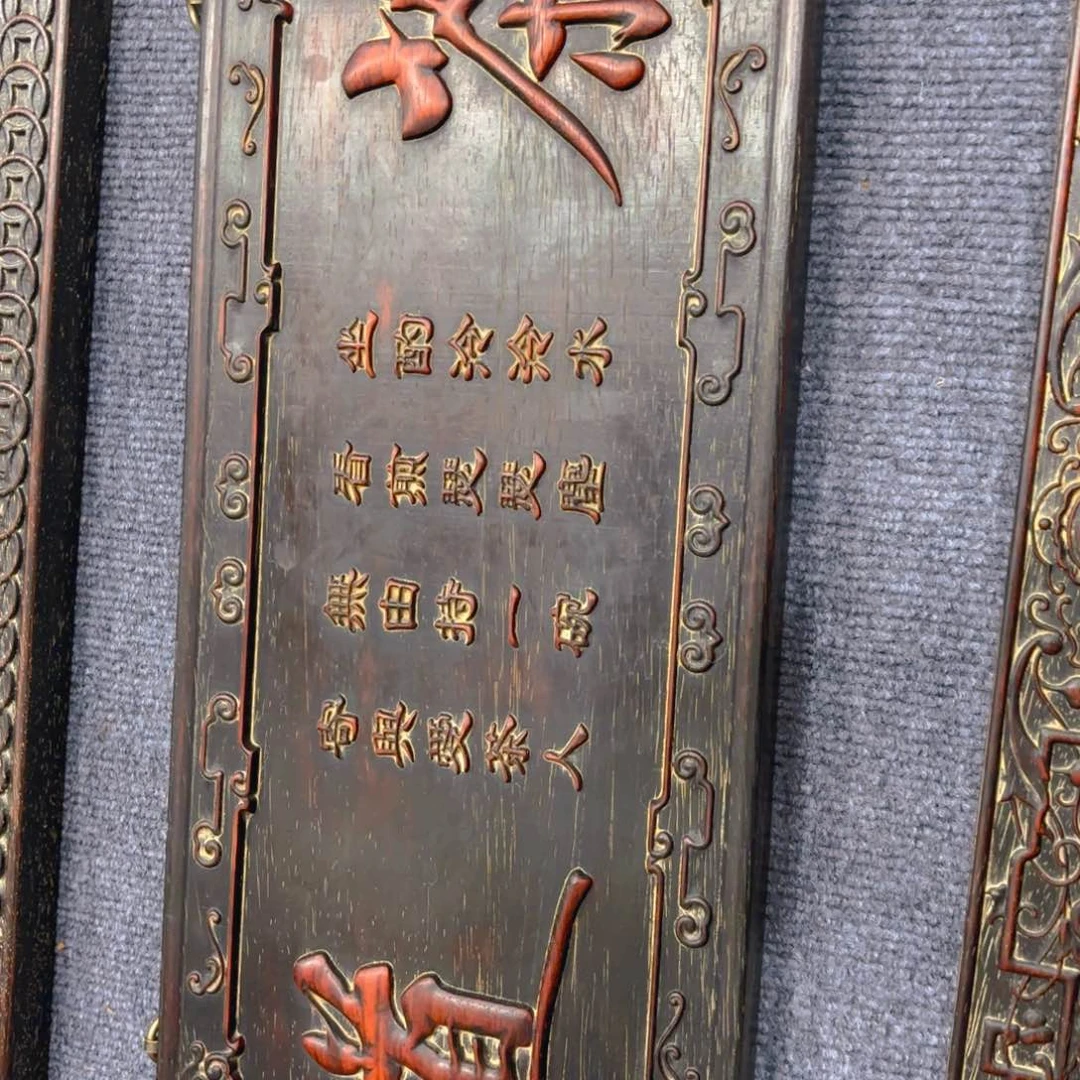 坐酌泠泠水
看煎瑟瑟塵
無由持一碗
寄與愛茶人